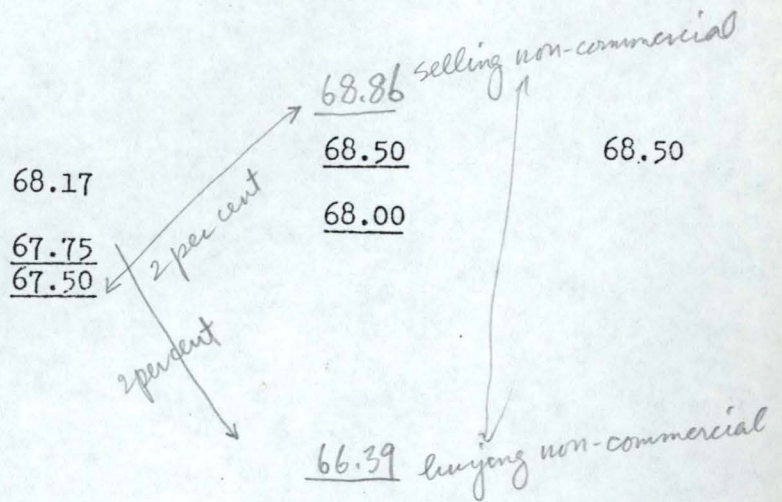 68.86 selling non-commercial
68.50 68.50
68.17
68.00
67.75
67.50
2 per cent
2 percent
66.39 buying non-commercial